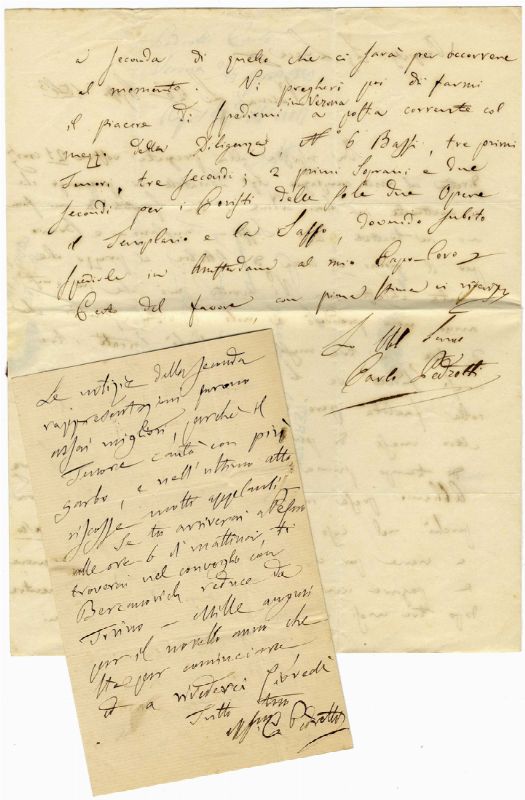 a seconda di quello che ci sarà per occorrere
al momento. Vi pregherei poi di farmi
in Verona
il piacere di spedirmi a posta corrente col
mezzo della Diligenza, N° 6 Bassi, tre primi
Tenori, tre secondi; 2 primi Soprani e due
secondi per i Coristi delle sole due Opere
il Templario e la Saffo, dovendo subito
spedirle in Amsterdam al mio Capo-Coro
Certo del favore con piena stima vi
Carlo Pedrotti
Le notizie della seconda
rappresentazioni furono
assai migliori, perchè il
Tenore cantò con più
garbo, e nell'ultimo atto
riscosse molti applausi.
Se tu arriverai a
alle ore 6 di mattina, ti
troverai nel convoglio con
Bercanovich reduce da
Torino - Mille auguri
per il novello anno che
sta per cominciare
e a rivederci
Tutto tuo
C Pedrotti